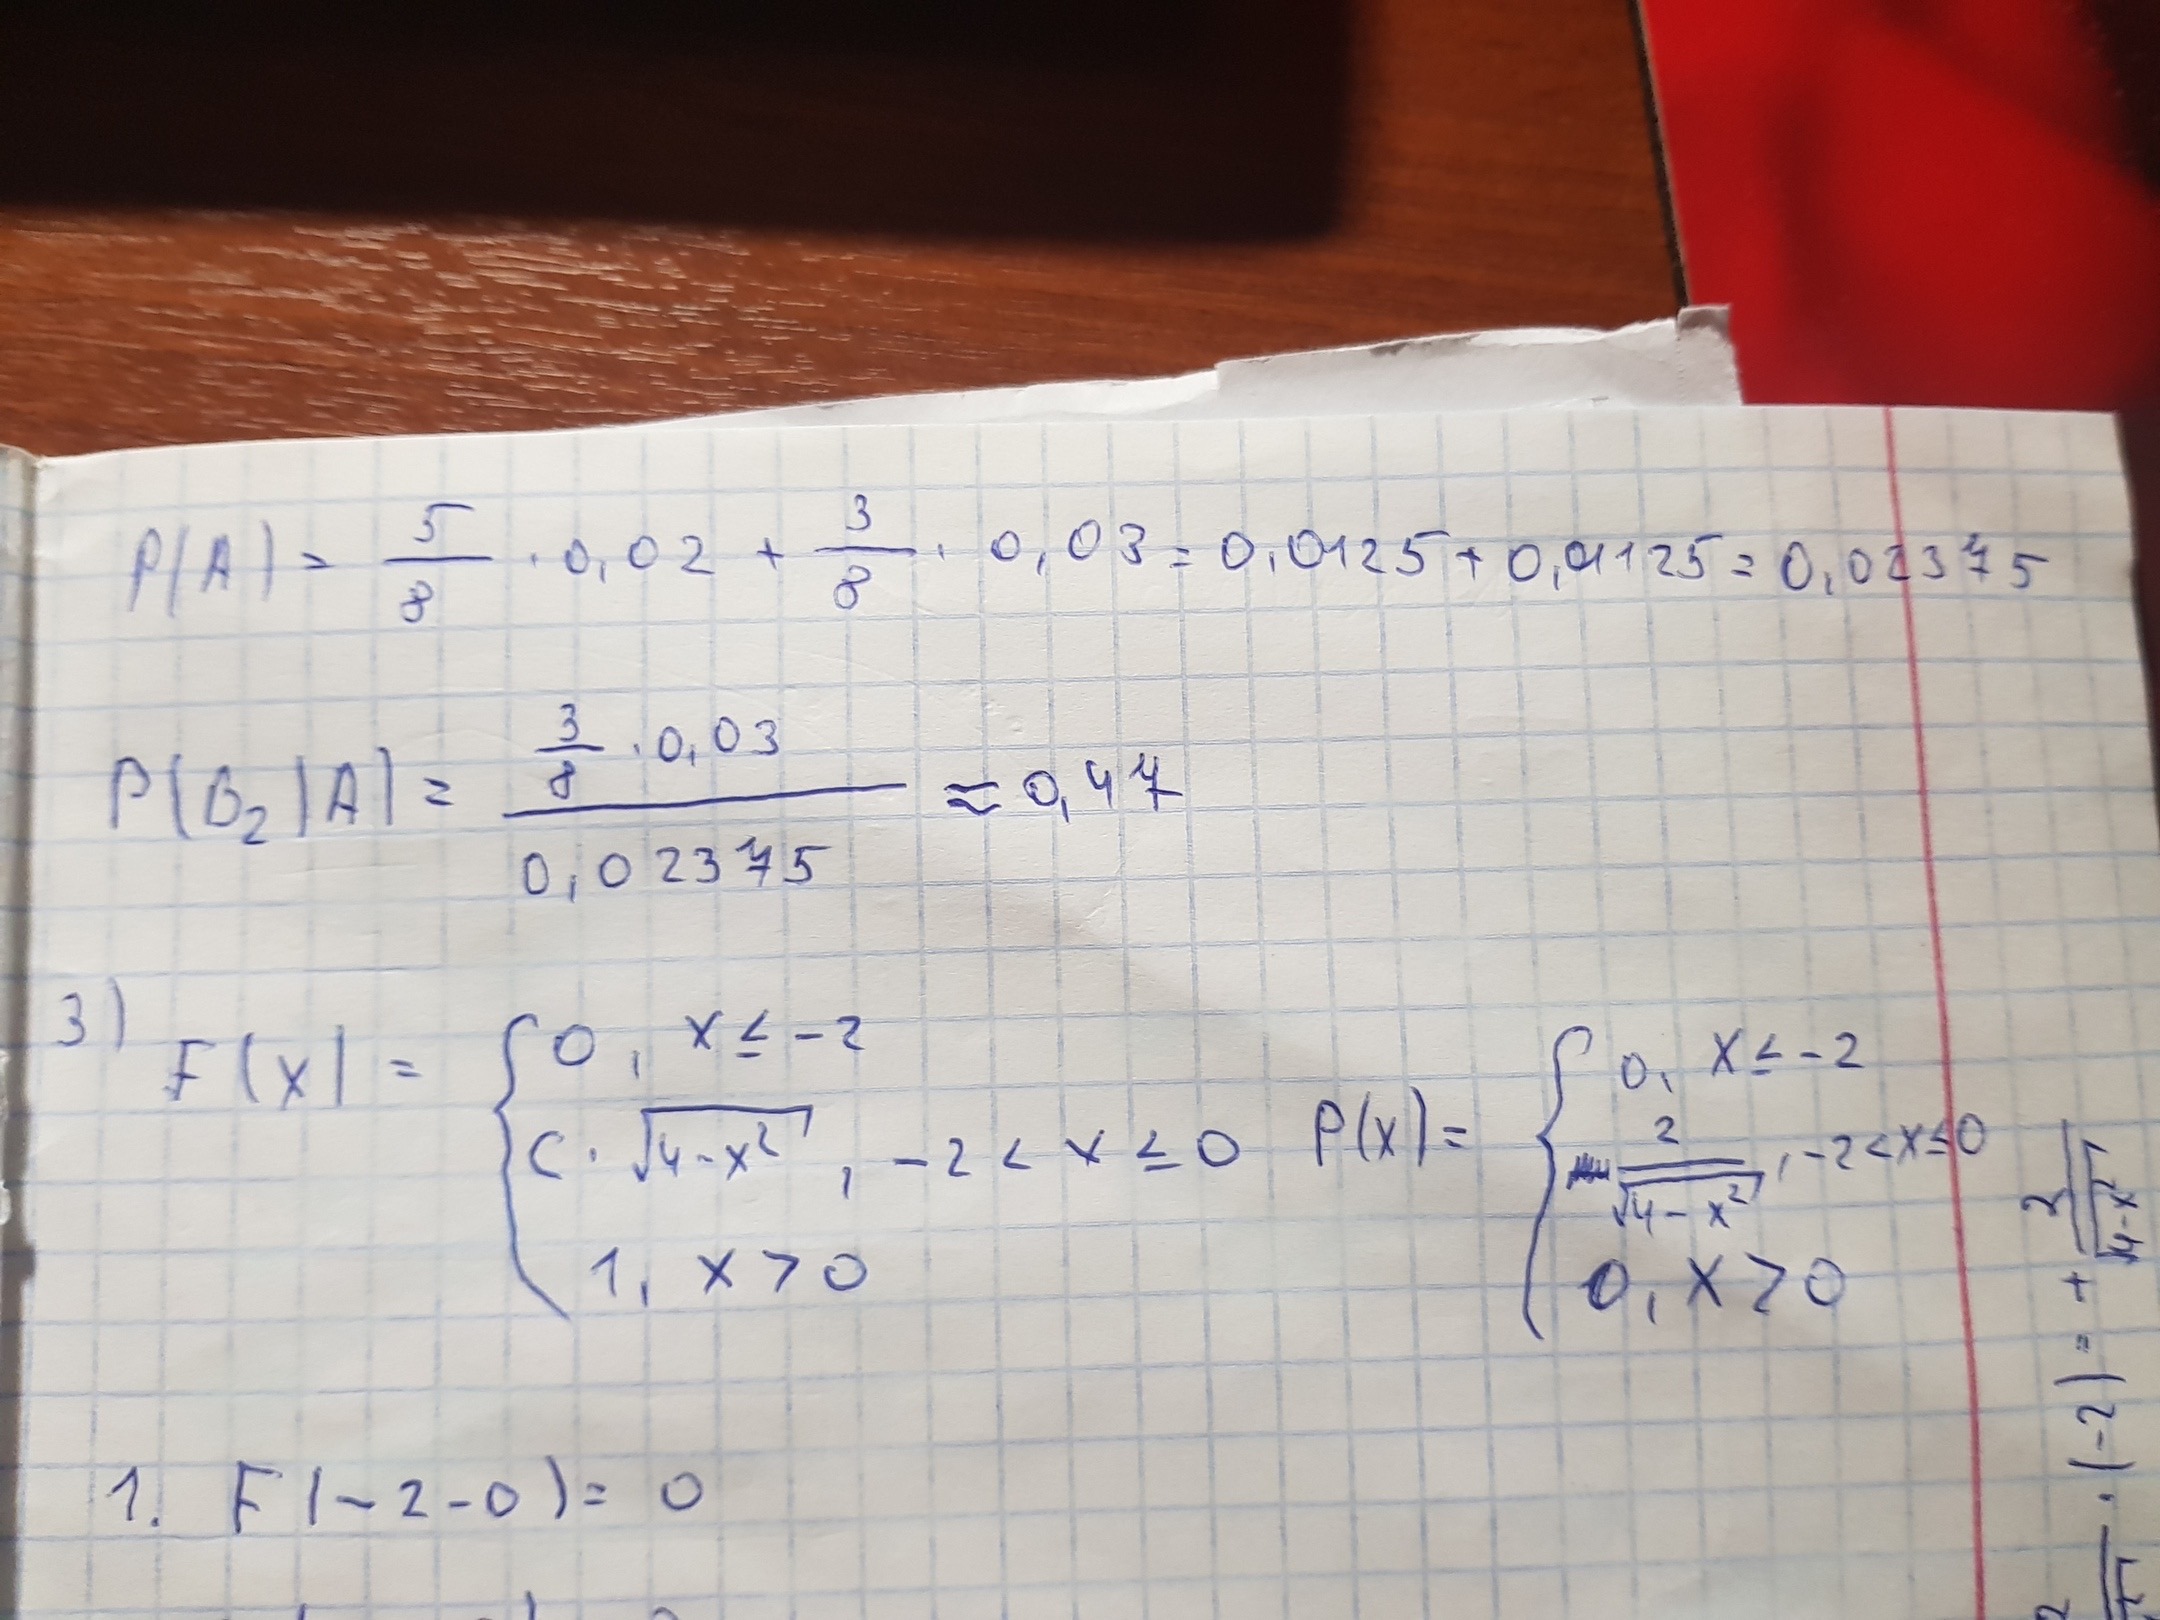 P(A) = 5/8 · 0,02 + 3/8 · 0,03 = 0,0125 + 0,01125 = 0,02375
P(B₂|A) = (3/8 · 0,03)/0,02375 ≈ 0,47
3) F(x) = { 0, x ≤ -2
c · √(4-x²), -2 < x ≤ 0
1, x > 0
P(x) = { 0, x ≤ -2
2/√(4-x²), -2 < x ≤ 0
0, x > 0
1. F(-2-0) = 0
· (-2) = + 2/√(4-x²)